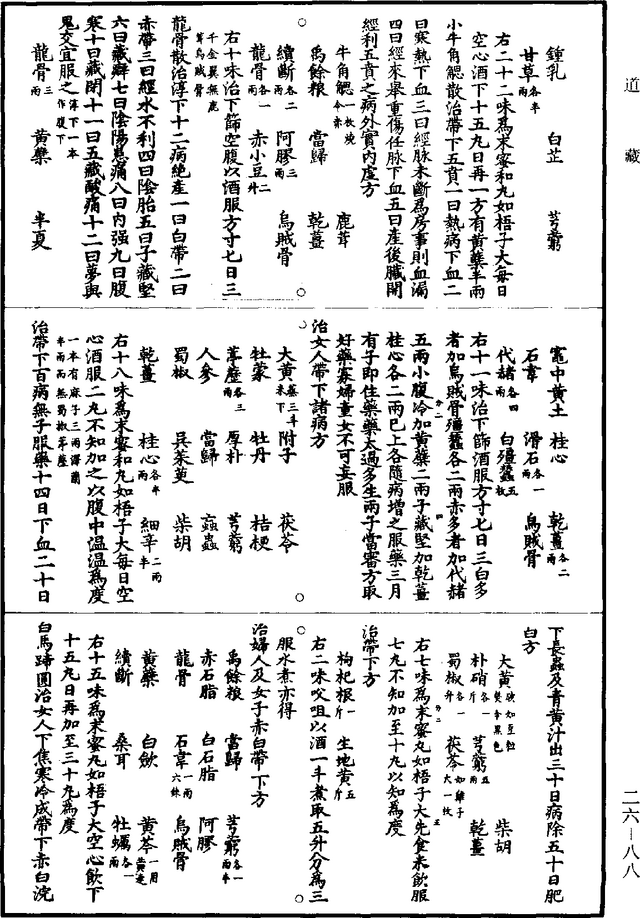 道藏
鍾乳　白芷　芎藭
甘草各半兩
右二十二味為末蜜和丸如梧子大每日
空心酒下十五丸日再一方有黃蘗半兩
小牛角䚡散治帶下五賁一曰熱病下血二
曰寒熱下血三曰經脉未斷為房事則血漏
四曰經來舉重傷任脉下血五曰產後臟開
經利五賁之病外實內虛方
牛角䚡　鹿茸
禹餘粮　當歸　乾薑
續斷各二兩　阿膠三兩　烏賊骨
龍骨各一兩　赤小豆二升
右十味治下篩空腹以酒服方寸匕日三
千金翼無鹿茸烏賊骨
龍骨散治淳下十二病絕產一曰白帶二曰
赤帶三曰經水不利四曰陰胎五曰子藏堅
六曰藏癖七曰陰陽患痛八曰內强九曰腹
寒十曰藏閉十一曰五藏酸痛十二曰夢與
鬼交宜服之淳下一本作腹下
龍骨三兩　黃蘗　半夏
竈中黃土　桂心　乾薑各二兩
石韋　滑石各一兩　烏賊骨
代赭各四兩　白殭蠶五枚
右十一味治下篩酒服方寸匕日三白多
者加烏賊骨殭蠶各二兩赤多者加代赭
五兩小腹冷加黃蘗二兩子藏堅加乾薑
桂心各二兩已上各隨病增之服藥三月
有子即住藥藥太過多生兩子當審方取
好藥寡婦童女不可妄服
治女人帶下諸病方
大黃蒸三斗米下　附子　茯苓
牡蒙　牡丹　桔梗
葶藶各三兩　厚朴　芎藭
人參　當歸　䖟蟲
蜀椒　吳茱萸　柴胡
乾薑　桂心各半兩　細辛二兩半
右十八味為末蜜和丸如梧子大每日空
心酒服二丸不知加之以腹中溫溫為度
一本有麻子三兩澤蘭半兩而無蜀椒葶藶
治帶下百病無子服藥十四日下血二十日
下長蟲及青黃汁出三十日病除五十日肥
白方
大黃破如豆粒熬令黑色　柴胡
朴硝各一斤　芎藭五兩　乾薑
蜀椒各一升　茯苓如雞子大一枚
右七味為末蜜丸如梧子大先食米飲服
七丸不知加至十丸以知為度
治帶下方
枸杞根一斤　生地黃五斤
右二味㕮咀以酒一斗煮取五升分為三
服水煮亦得
治婦人及女子赤白帶下方
禹餘粮　當歸　芎藭各一兩半
赤石脂　白石脂　阿膠
龍骨　石韋一兩六銖　烏賊骨
黃蘗　白蘞　黃芩一用黃連
續斷　桑耳　牡蠣各一兩
右十五味為末蜜丸如梧子大空心飲下
十五丸日再加至三十丸為度
白馬蹄圓治女人下焦寒冷成帶下赤白浣
二六－八八